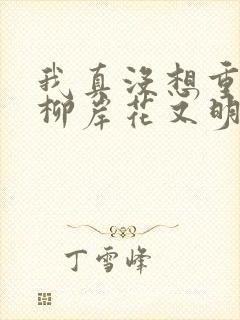 我真没想重
柳岸花又明
丁雪峰